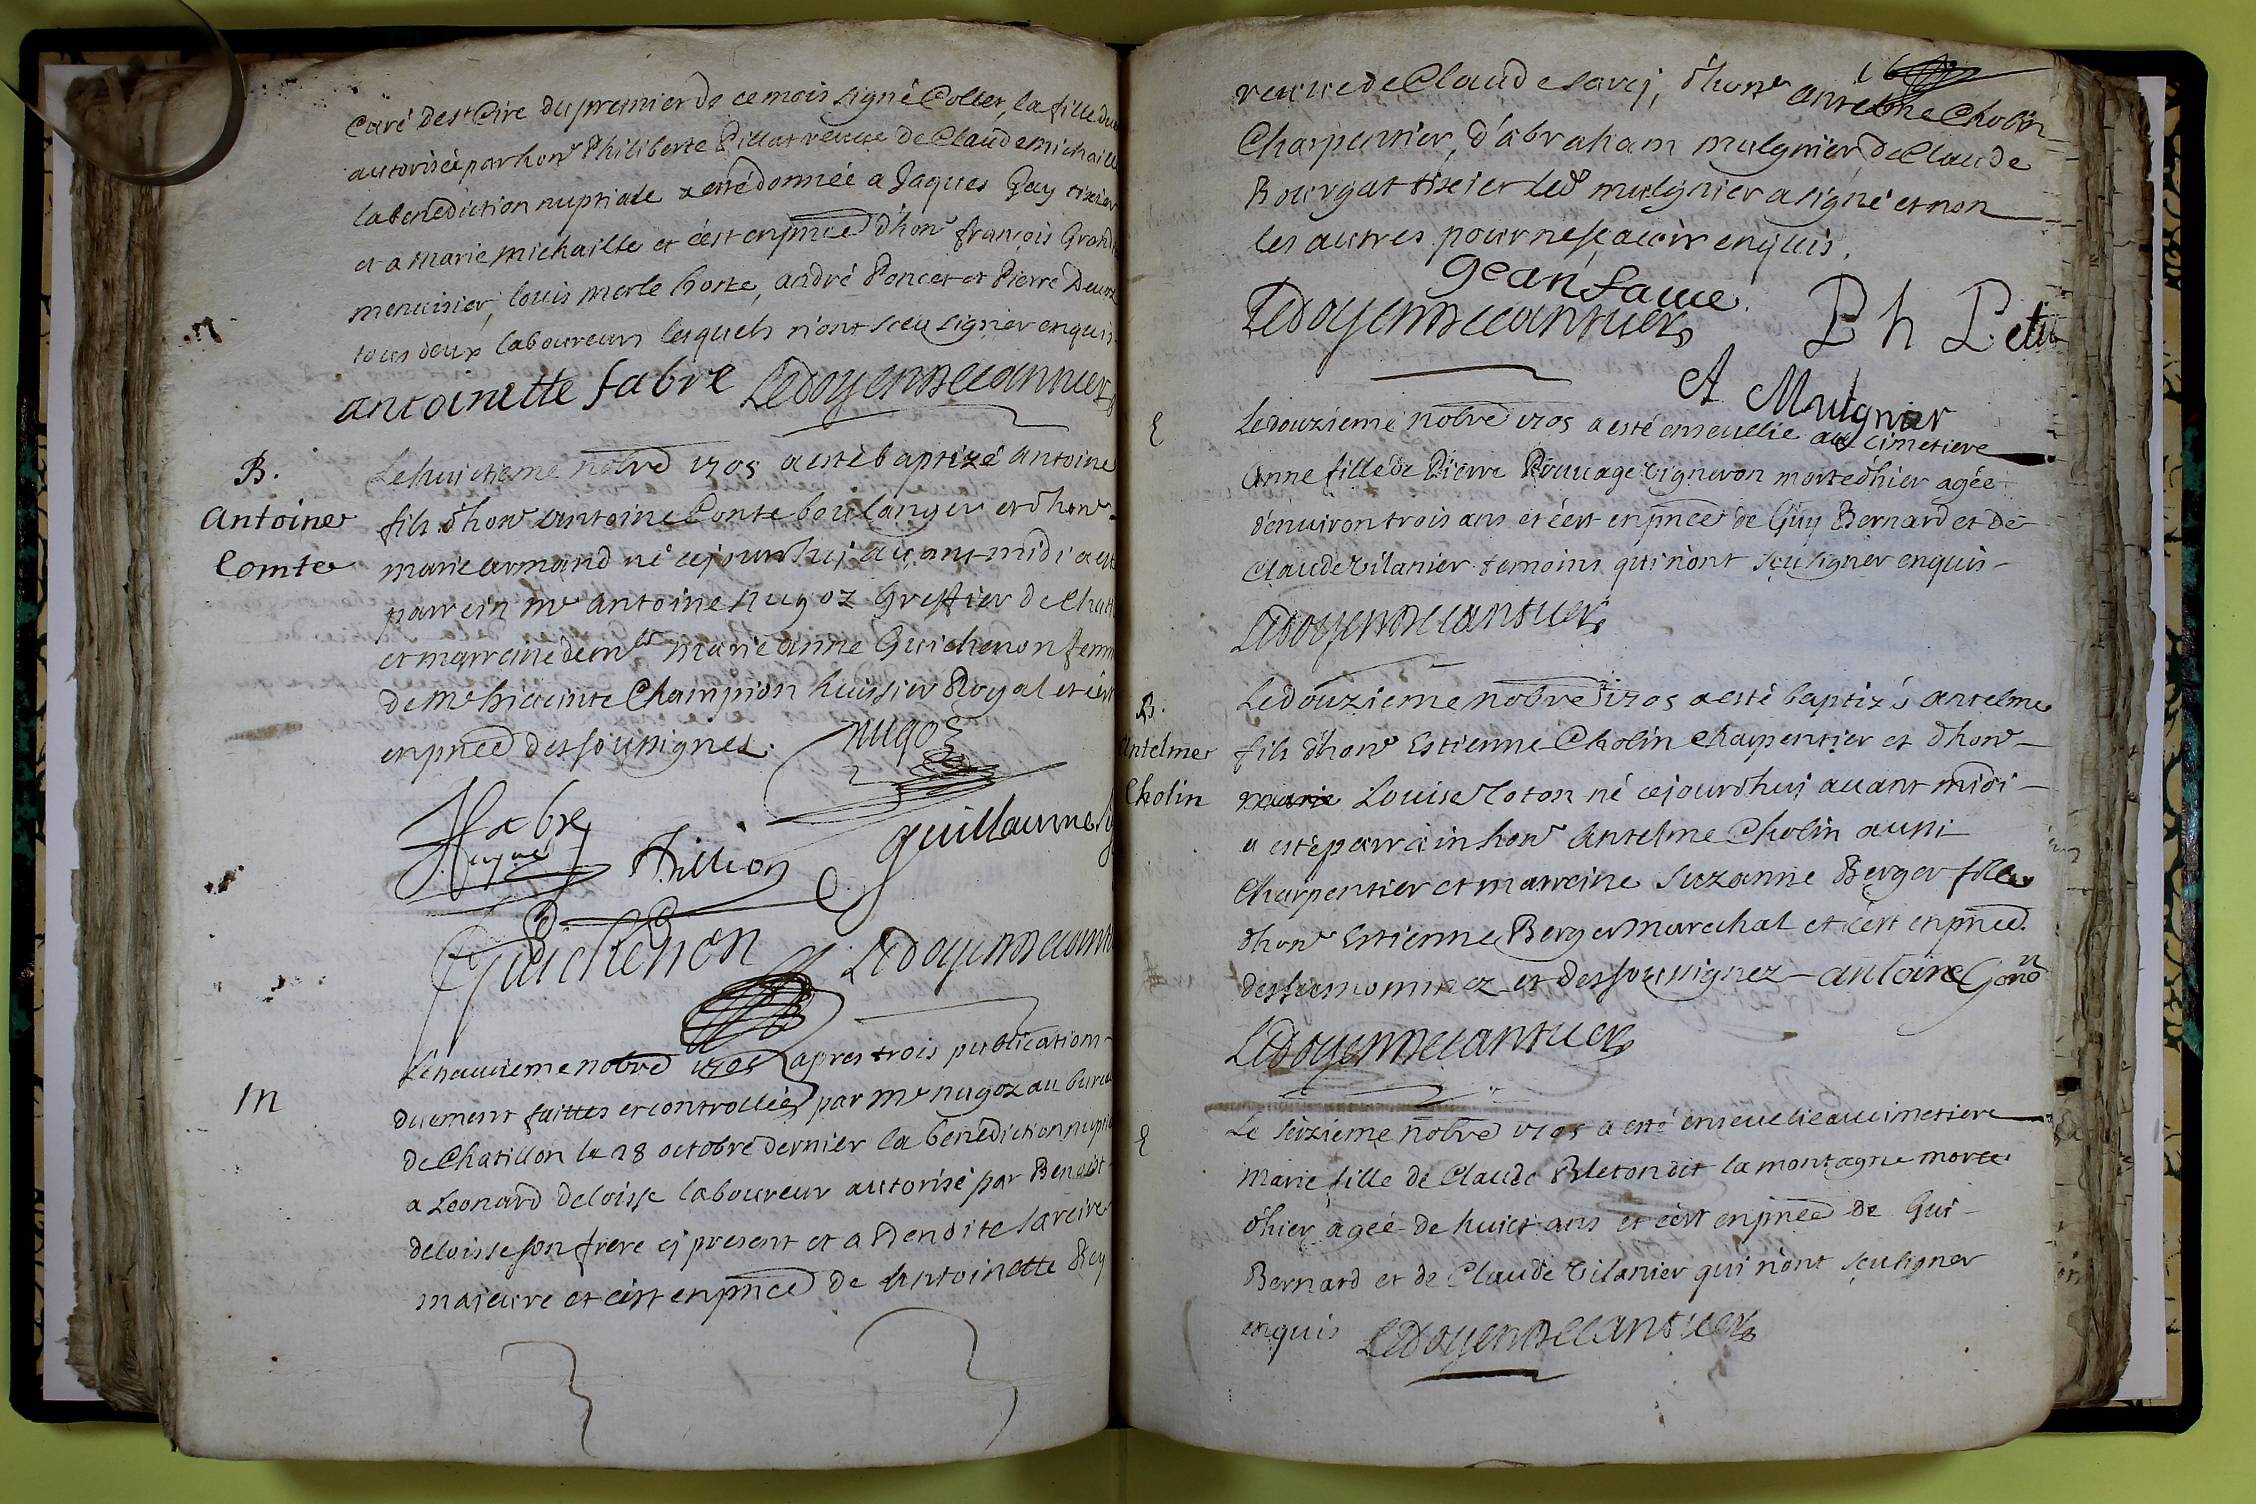 Curé de st Cire du premier de ce mois signé Collet, la fille du
autorisée par honr Philiberte Pillat veuve de Claude michaill
la benediction nuptiale a esté donnée a Jaques Gay tixier
et a marie michaille et c'est en pnce d'hon françois Grand
menuisier, louis merle hoste, andré Poncet et Pierre
tous deux laboureurs lesquels n'ont sceu signer enquis
antoinette fabre Le doyen
B.
Antoine
Comte
Le huictieme nobre 1705 a esté baptizé antoine
fils d'honr antoine Conte boulanger et d'honr
marie armand né cejourdhuj avant midi a esté
parrein mr antoine nugoz Greffier de Chat
et marreine demlle marie anne Guichenon fem
de mr hiacinte Champion huissier Royal et c'est
en pnce des sousignes.
nugoz
fabre
fillion
guillaume
Guichenon
Le doyen
M
Le nauvieme nobre 1705 apres trois publication
duement faittes et controllées par mr nugoz au burea
de Chatillon le 28 octobre dernier la benediction nuptia
a Leonard deloisse laboureur autorisé par Benoist
deloisse son frere cj present et a Benoite
majeure et c'est en pnce de Antoinette
veuve de Claude savej, d'honr antelme Cholin
Charpentier, d'abraham mulgnier, de Claude
Bourgat tixier led mulgnier a signé et non
les autres pour ne sçavoir enquis.
Jean faure.
Le doyen
Ph Petit
A Mulgnier
E
Le douzieme nobre 1705 a esté ensevellie au cimetiere
Anne fille de Pierre Vigneron morte d'hier agée
d'environ trois ans et c'est en pnce de Guy Bernard et de
Claude Tilanier temoins qui n'ont sçu signer enquis
Le doyen
B.
Antelme
Cholin
Le douzieme nobre 1705 a esté baptizé antelme
fils d'honr Estienne Cholin charpentier et d'honr
marie Louise Coton né cejourdhuj avant midi
a esté parrain honr Antelme Cholin aussi
Charpentier et marreine Suzanne Berger fille
d'honr Estienne Berger marechal et c'est en pnce
des susnommez et des sousignez antoine Gonon
Le doyen
E
Le seizieme nobre 1705 a esté ensevelie au cimetiere
Marie fille de Claude Bleton dit la montagne morte
d'hier agée de huict ans et c'est en pnce de Gui
Bernard et de Claude Tilanier qui n'ont sçu signer
enquis Le doyen